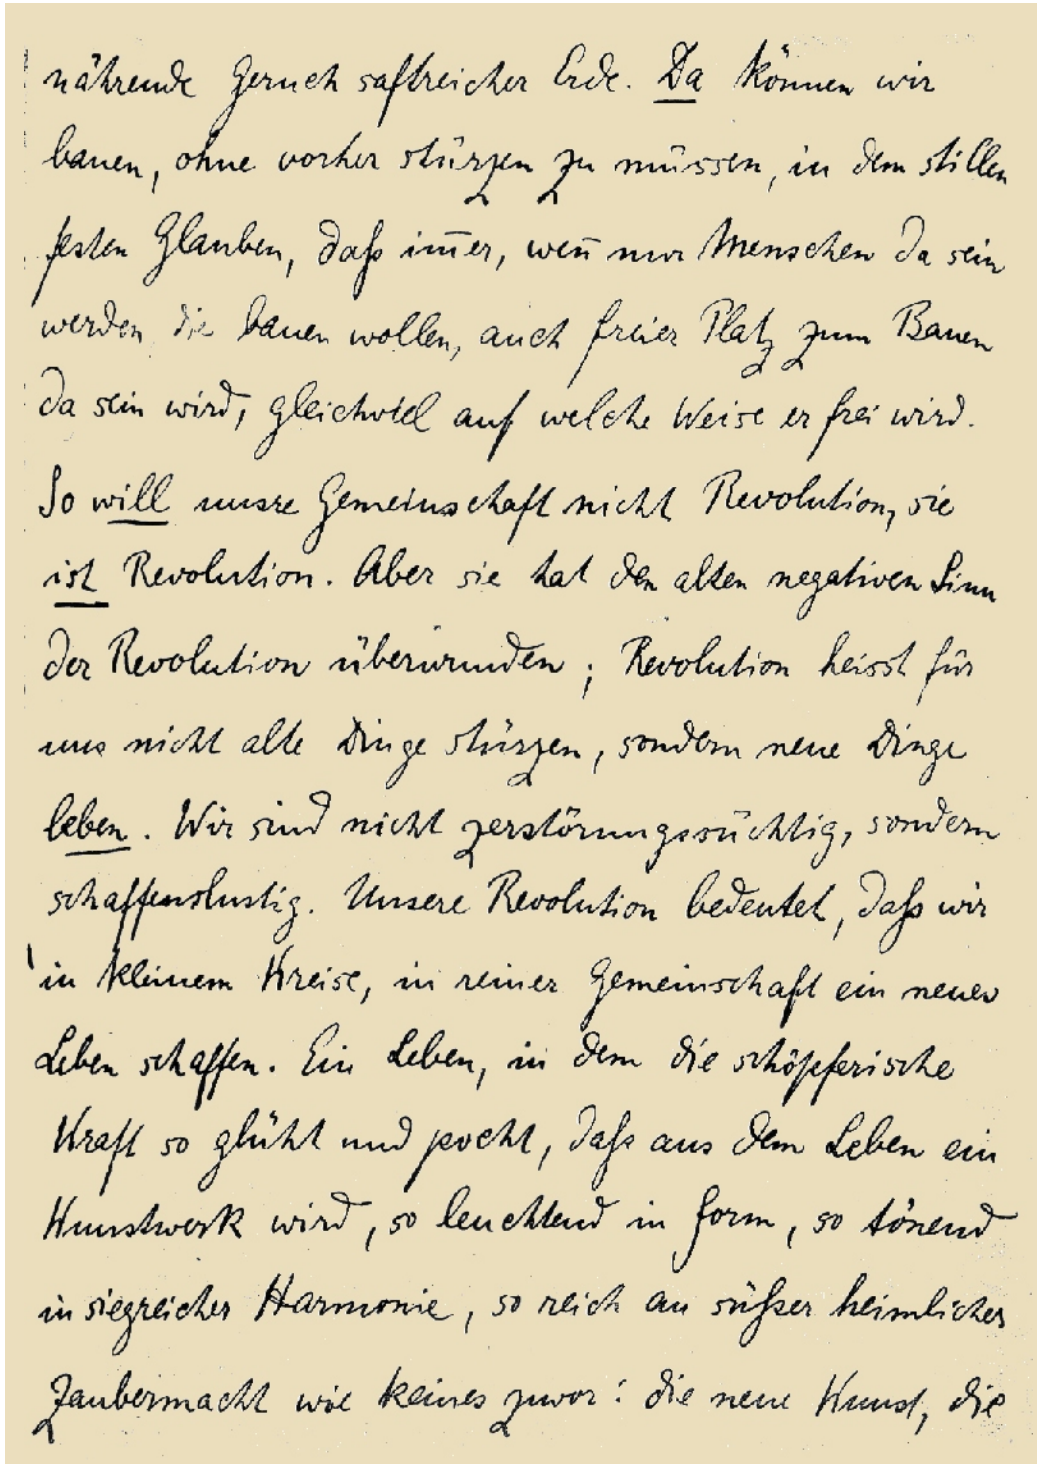 nährende Geruch saftreicher Erde. Da können wir
bauen, ohne vorher stürzen zu müssen, in dem stillen
festen Glauben, daß im̅er, wen̅ nur Menschen da sein
werden die bauen wollen, auch freier Platz zum Bauen
da sein wird, gleichviel auf welche Weise er frei wird.
So will unsre Gemeinschaft nicht Revolution, sie
ist Revolution. Aber sie hat den alten negativen Sinn
der Revolution überwunden; Revolution heisst für
uns nicht alte Dinge stürzen, sondern neue Dinge
leben. Wir sind nicht zerstörungssüchtig, sondern
schaffenslustig. Unsere Revolution bedeutet, daß wir
in kleinem Kreise, in reiner Gemeinschaft ein neues
Leben schaffen. Ein Leben, in dem die schöpferische
Kraft so glüht und pocht, daß aus dem Leben ein
Kunstwerk wird, so leuchtend in Form, so tönend
in siegreicher Harmonie, so reich an süßer heimlicher
Zaubermacht wie keines zuvor: die neue Kunst, die